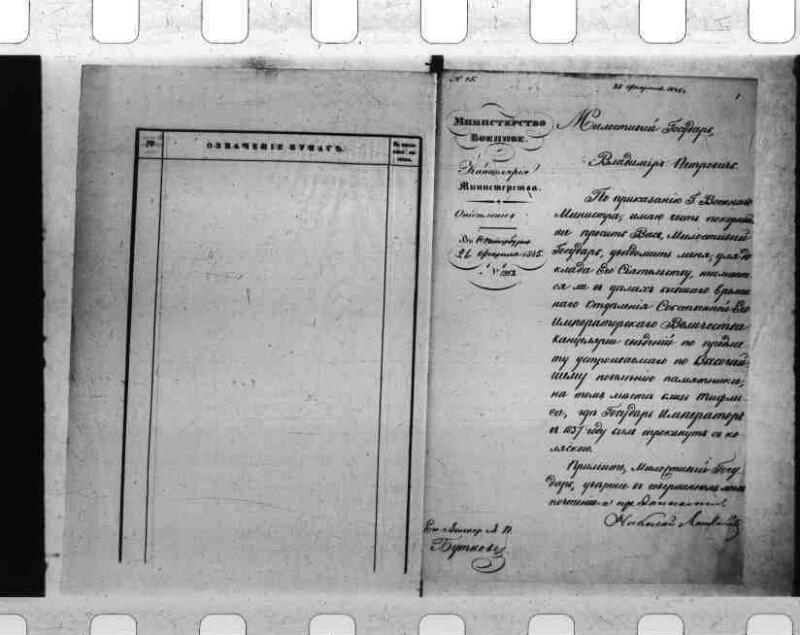 №
ОЗНАЧЕНІЕ БУМАГЪ.
N 15.
1
Министерство
Военное.
Канцелярія
Министерства.
Отдѣленія
Въ С. Петербургѣ
26 февраля 1845.
Милостивый Государь,
Владиміръ Петровичъ.
По приказанію Г. Военнаго
Министра, имѣю честь покорнѣй
ше просить Васъ, Милостивый
Государь, увѣдомить меня, для до
клада Его Сіятельству, не имѣет
ся ли въ дѣлахъ бывшаго времен
наго Отдѣленія Собственной Его
Императорскаго Величества
Канцеляріи свѣдѣній по предме
ту устроиваемаго по Высочай
шему повелѣнію памятника,
на томъ мѣстѣ близъ Тифли
са, гдѣ Государь Императоръ
въ 1837 году былъ опрокинутъ съ ко
ляскою.
Примите, Милостивый Госу
дарь, увѣреніе въ совершенномъ моемъ
почтеніи и преданности.
Николай
В. П.
Буткову